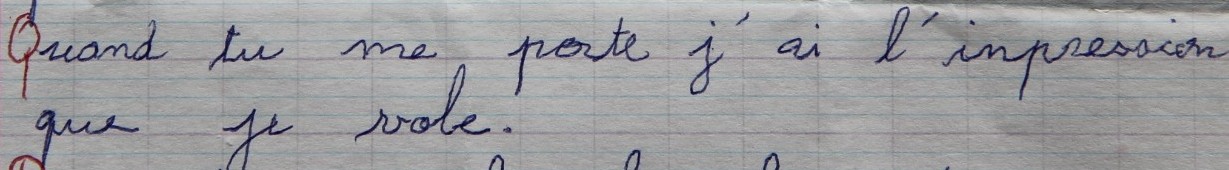 Quand tu me porte j'ai l'inpression
que je vole.